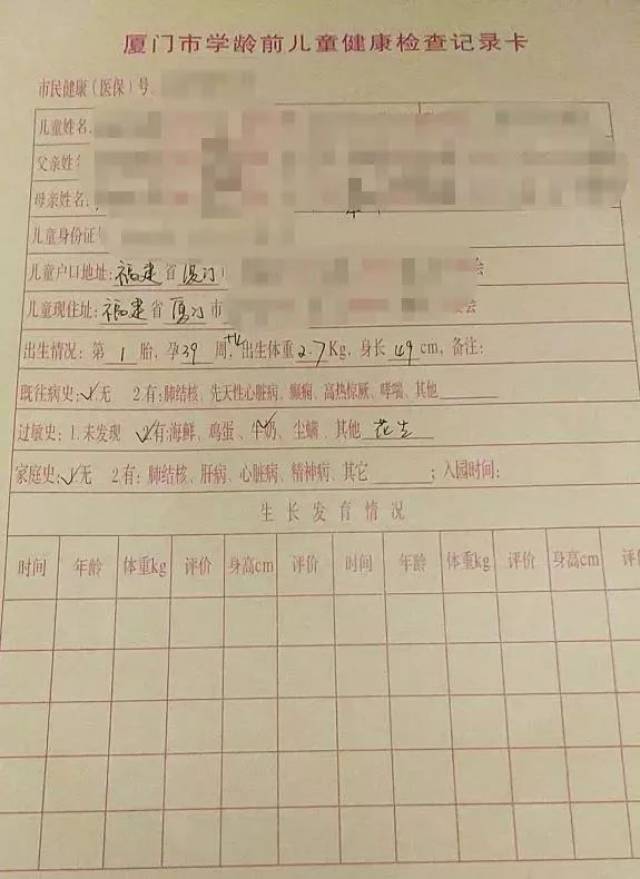 厦门市学龄前儿童健康检查记录卡
市民健康(医保)号
儿童姓名:
父亲姓名
母亲姓名:
儿童身份证
儿童户口地址:福建省厦门
儿童现住址:福建省厦门市
出生情况:第1胎,孕39周+4,出生体重2.7Kg,身长49cm,备注:
既往病史:✓1.无 2.有:肺结核、先天性心脏病、癫痫、高热惊厥、哮喘、其他
过敏史:1.未发现 ✓2.有:海鲜、鸡蛋、牛奶✓、尘螨、其他 花生
家庭史:✓1.无 2.有:肺结核、肝病、心脏病、精神病、其它 ;入园时间:
生长发育情况
时间 年龄 体重kg 评价 身高cm 评价 时间 年龄 体重kg 评价 身高cm 评